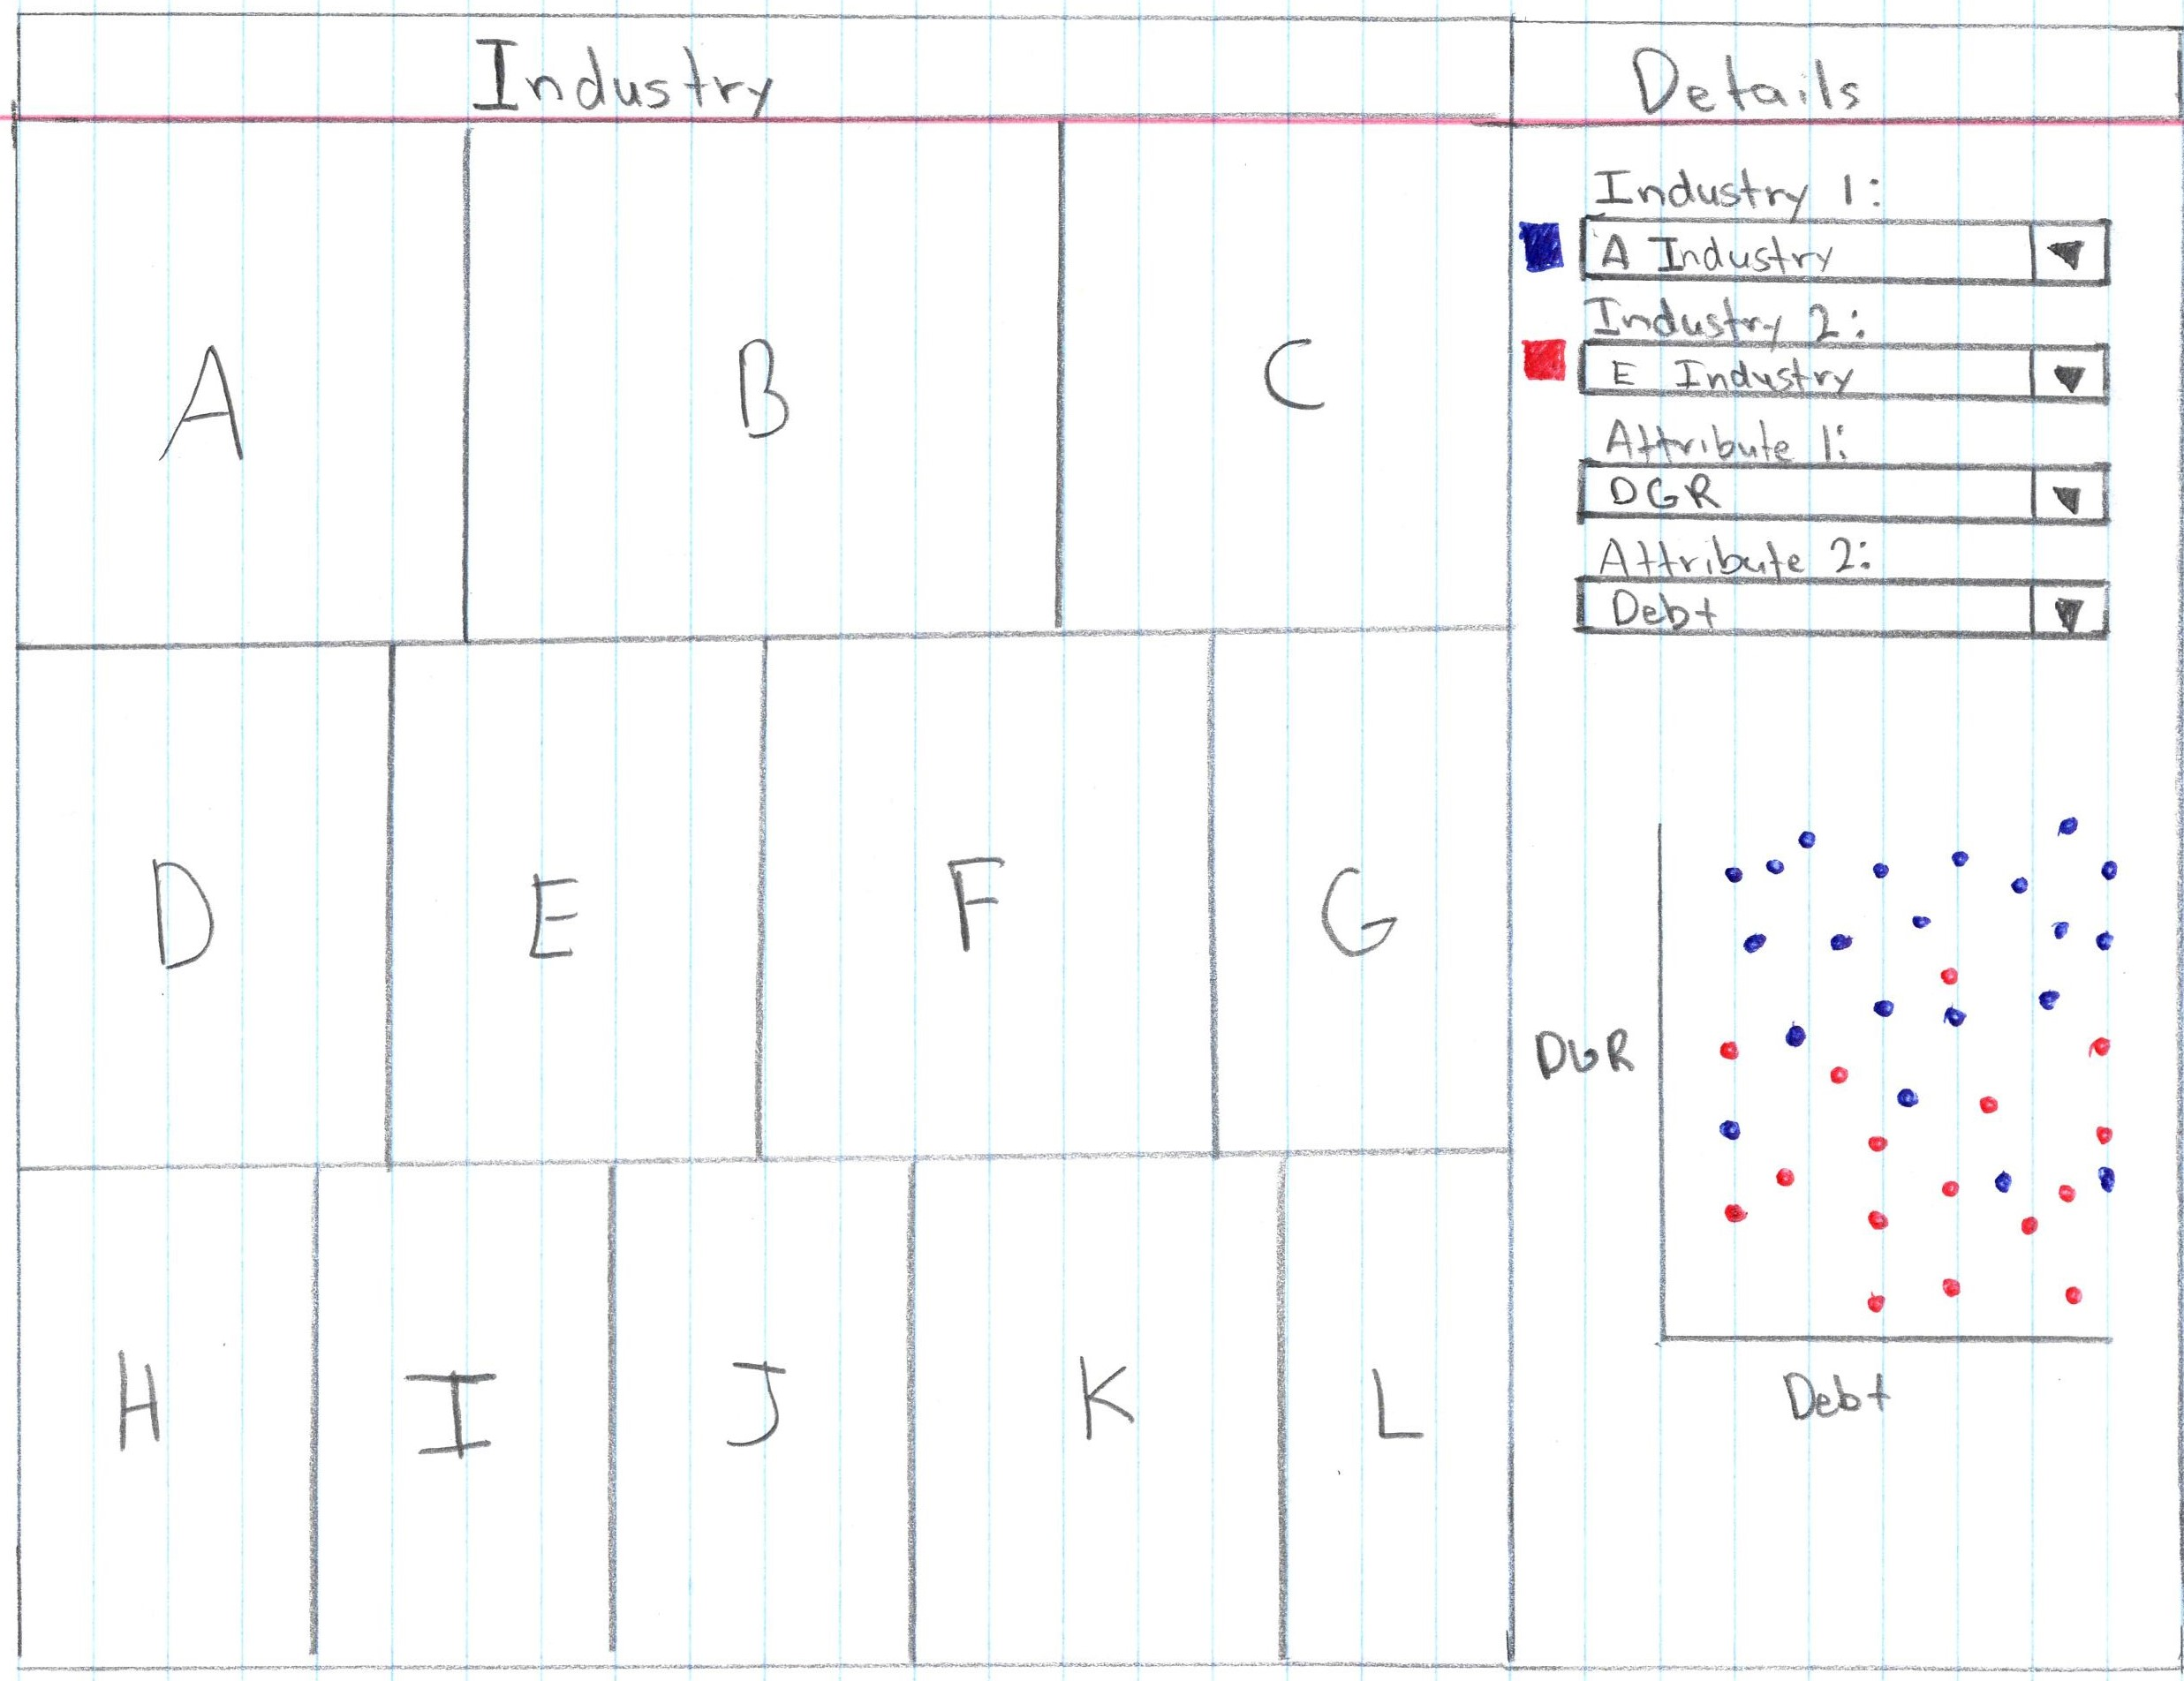 Industry
Details
A
B
C
D
E
F
G
H
I
J
K
L
Industry 1:
A Industry
Industry 2:
E Industry
Attribute 1:
DGR
Attribute 2:
Debt
DGR
Debt